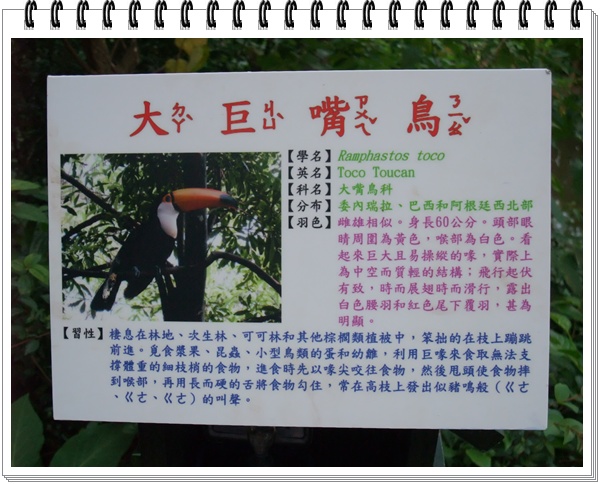 大ㄉㄚˋ 巨ㄐㄩˋ 嘴ㄗㄨㄟˇ 鳥ㄋㄧㄠˇ
【學名】Ramphastos toco
【英名】Toco Toucan
【科名】大嘴鳥科
【分布】委內瑞拉、巴西和阿根廷西北部
【羽色】雌雄相似。身長60公分。頭部眼
睛周圍為黃色，喉部為白色。看
起來巨大且易操縱的喙，實際上
為中空而質輕的結構；飛行起伏
有致，時而展翅時而滑行，露出
白色腰羽和紅色尾下覆羽，甚為
明顯。
【習性】棲息在林地、次生林、可可林和其他棕櫚類植被中，笨拙的在枝上蹦跳
前進。覓食漿果、昆蟲、小型鳥類的蛋和幼雛，利用巨喙來食取無法支
撐體重的細枝梢的食物，進食時先以喙尖咬往食物，然後甩頭使食物摔
到喉部，再用長而硬的舌將食物勾住，常在高枝上發出似豬鳴般（ㄍㄜ
、ㄍㄜ、ㄍㄜ）的叫聲。